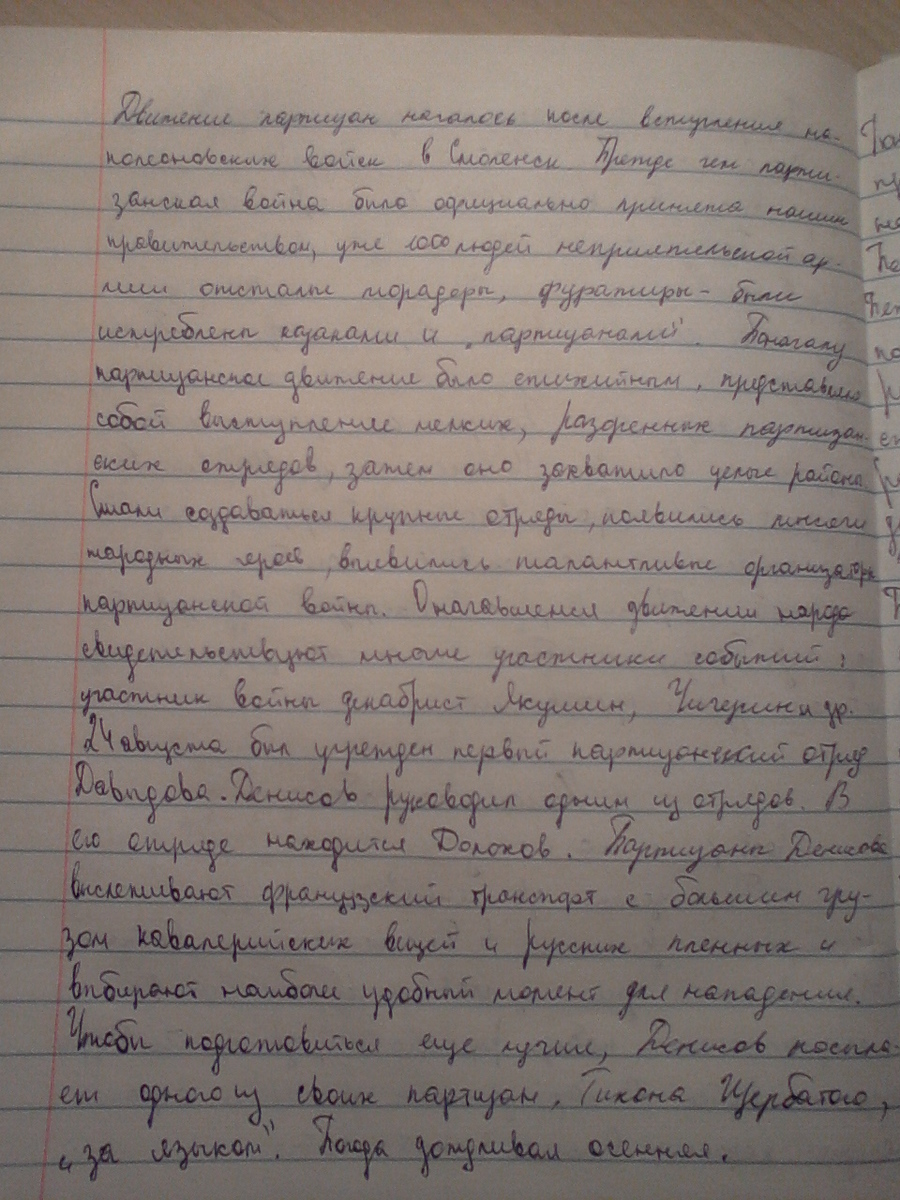 Движение партизан началось после вступления на-
полеоновских войск в Смоленск. Прежде чем парти-
занская война была официально принята нашим
правительством, уже 1000 людей неприятельской ар-
мии отсталые морадеры, фуражиры - были
истреблены казаками и „партизанами". Поначалу
партизанское движение было стихийным, представляло
собой выступление мелких, разоренных партизан-
ских отрядов, затем оно захватило целые района
Стали создаваться крупные отряды, появились многи
народных герое, выявились талантливые организаторы
партизанской войны. О начавшемся движении народа
свидетельствуют многие участники событий:
участник войны декабрист Якушин, Чичерин и др.
24 августа был учрежден первый партизанский отряд
Давыдова. Денисов руководил одним из отрядов. В
его отряде находится Долохов. Партизаны Денисова
выслеживают французский транспорт с большим гру-
зом кавалерийских вещей и русских пленных и
выбирают наиболе удобный момент для нападения.
Чтобы подготовиться еще лучше, Денисов посыла-
ет одного из своих партизан, Тихона Щербатого,
„за языком". Погода дождливая осенняя.